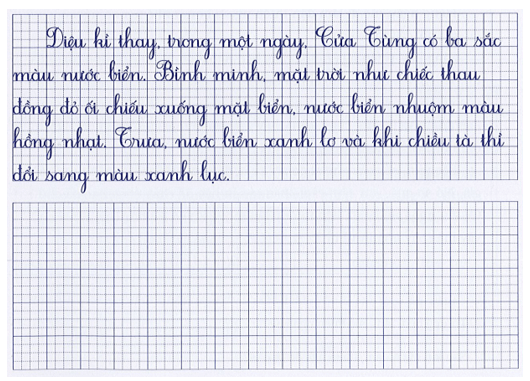 Diệu kì thay, trong một ngày, Cửa Tùng có ba sắc
màu nước biển. Bình minh, mặt trời như chiếc thau
đồng đỏ ối chiếu xuống mặt biển, nước biển nhuộm màu
hồng nhạt. Trưa, nước biển xanh lơ và khi chiều tà thì
đổi sang màu xanh lục.